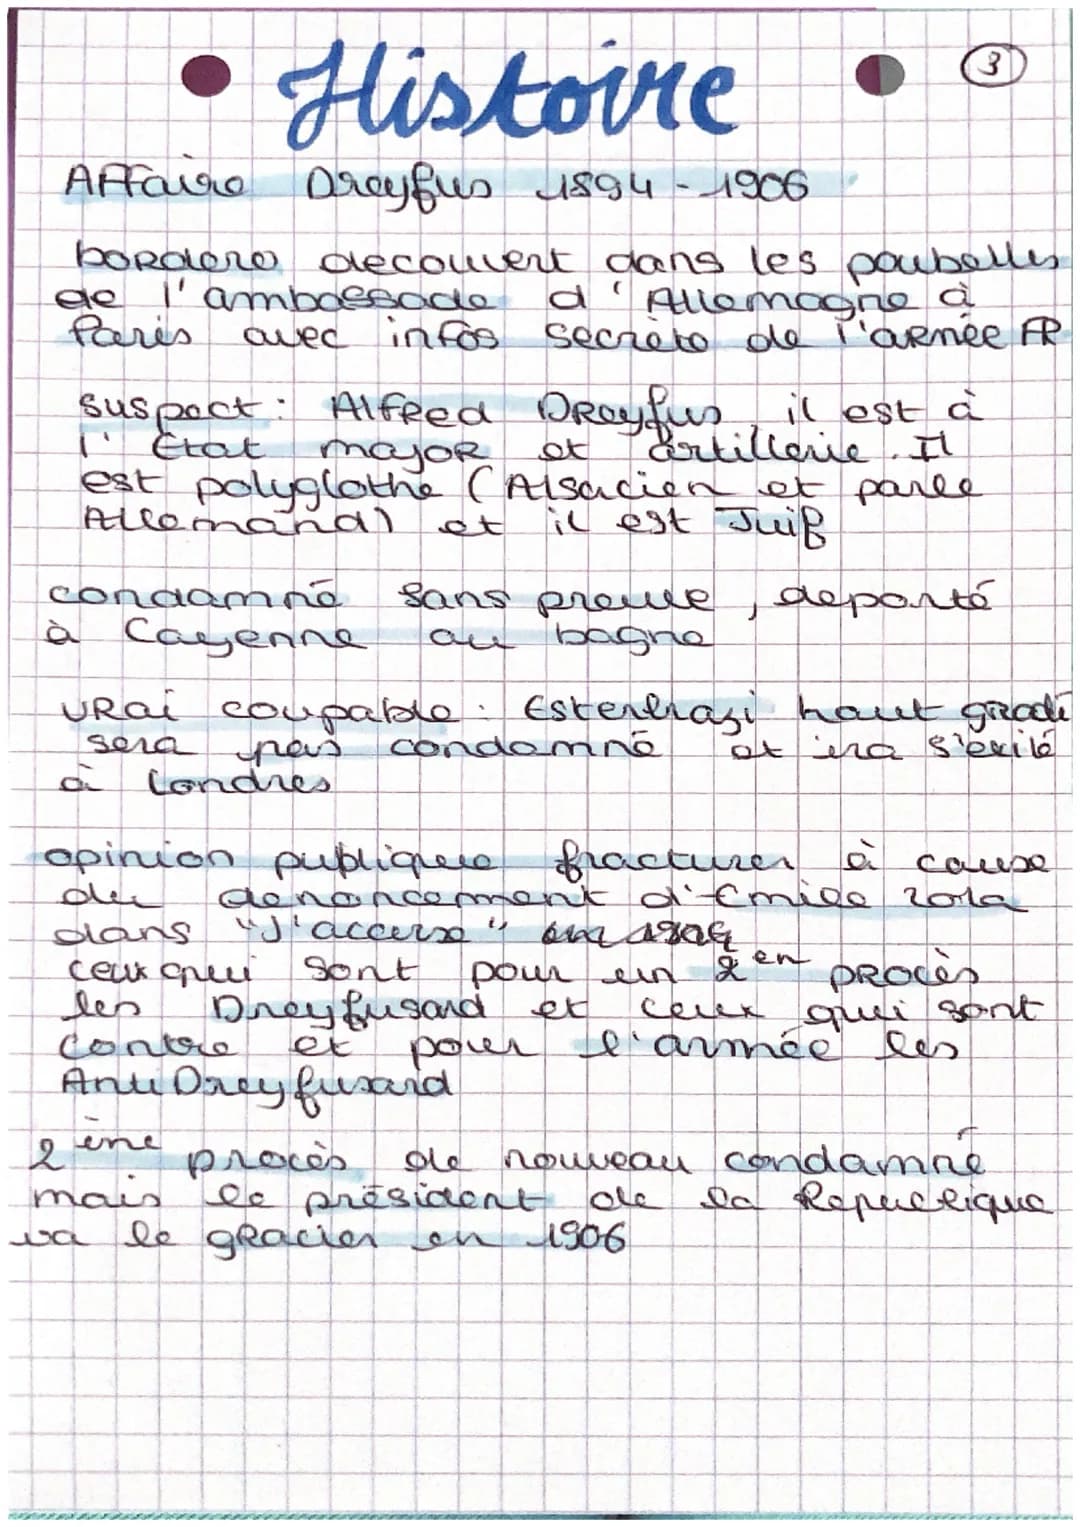 Histoire
3
Affaire Dreyfus 1894-1906
bordero decouvert dans les poubelles
de l'ambassade d'Allemagne à
Paris avec infos secrète de l'armée FR
suspect : Alfred Dreyfus il est à
l'Etat major et artillerie. Il
est polyglothe (Alsacien et parle
Allemand) et il est Juif
condamné sans preuve, deporté
à Cayenne au bagne
vrai coupable : Esterhazi haut gradé
sera pas condamné et ira s'exilé
à Londres
opinion publique fracturer à cause
du denoncement d'Emile Zola
dans "J'accuse"
ceux qui sont pour un 2en procès
les Dreyfusard et ceux qui sont
contre et pour l'armée les
AntiDreyfusard
2ène procès de nouveau condamné
mais le président de la Republique
va le gracier en 1906